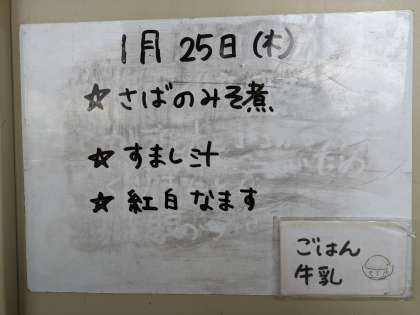 1月 25日(木)
☆さばのみそ煮
☆すまし汁
☆紅白なます
ごはん
牛乳